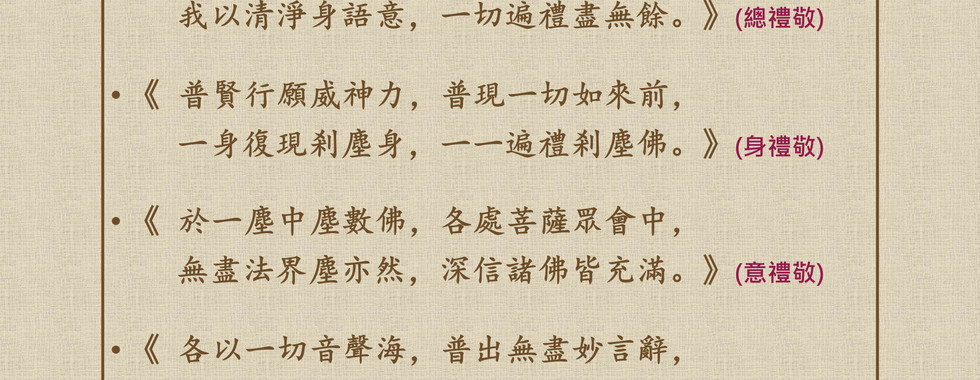 我以清淨身語意，一切遍禮盡無餘。》(總禮敬)
•《 普賢行願威神力，普現一切如來前，
一身復現剎塵身，一一遍禮剎塵佛。》(身禮敬)
•《 於一塵中塵數佛，各處菩薩眾會中，
無盡法界塵亦然，深信諸佛皆充滿。》(意禮敬)
•《 各以一切音聲海，普出無盡妙言辭，